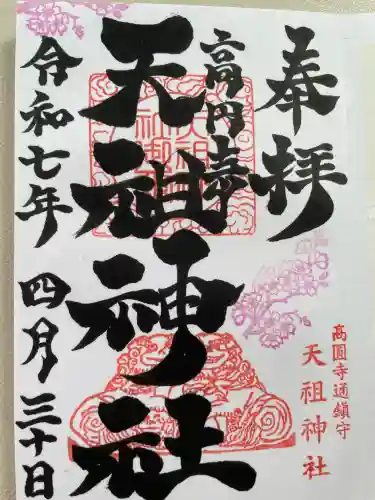 奉拝
高円寺
天祖神社
令和七年
四月三十日
高圓寺通鎮守
天祖神社